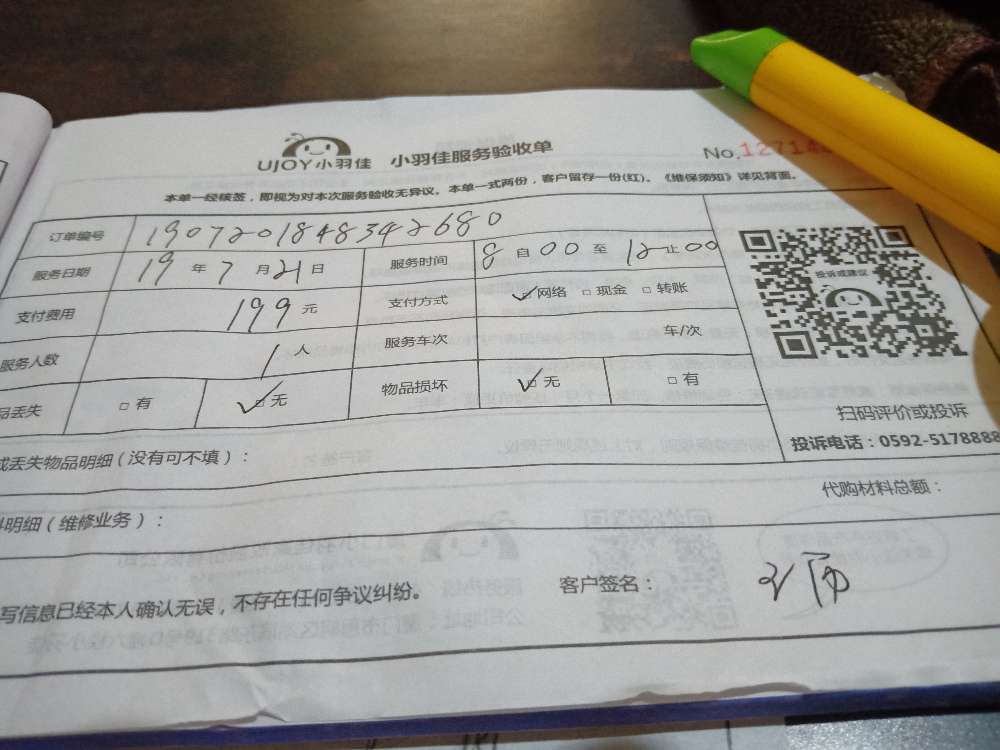 UJOY小羽佳 小羽佳服务验收单
No.12714
本单一经核签，即视为对本次服务验收无异议。本单一式两份，客户留存一份(红)。《维保须知》详见背面。
订单编号 1907201848342680
服务日期 19 年 7 月 21 日 服务时间 8 自 00 至 12 止 00
支付费用 199 元 支付方式 ✓□网络 □ 现金 □ 转账
服务人数 1 人 服务车次 车/次
品丢失 □ 有 ✓□无 物品损坏 ✓□无 □ 有
投诉或建议
扫码评价或投诉
投诉电话：0592-5178888
或丢失物品明细（没有可不填）：
代购材料总额：
料明细（维修业务）：
写信息已经本人确认无误，不存在任何争议纠纷。 客户签名：